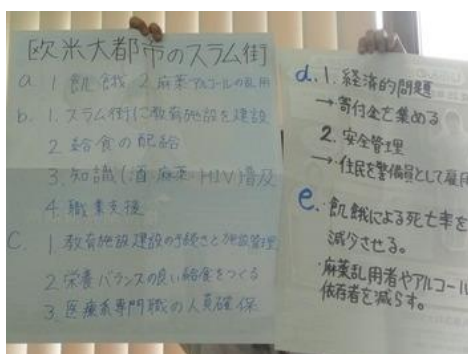 欧米大都市のスラム街
a. 1 飢餓 2 麻薬・アルコールの乱用
b. 1. スラム街に教育施設を建設
2 給食の配給
3. 知識(酒・麻薬・HIV)普及
4. 職業支援
C. 1 教育施設建設の手続きと施設管理
2 栄養バランスの良い給食をつくる
3. 医療系専門職の人員確保
d. 1. 経済的問題
→寄付金を集める
2. 安全管理
→・住民を警備員として雇用
e. ・飢餓による死亡率を
減少させる。
・麻薬乱用者やアルコール
依存者を減らす。